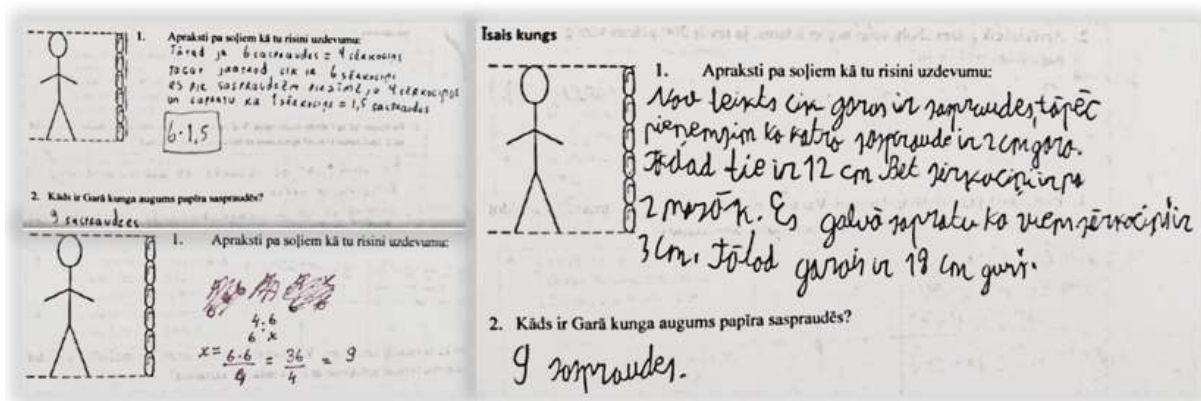 1. Apraksti pa soļiem kā tu risini uzdevumu:
Tātad ja 6 saspraudes = 4 sērkociņi
tagad jāatrod cik ir 6 sērkociņi
es pie saspraudēm piezīmēju 4 sērkociņus
un sapratu ka 1 sērkociņš = 1,5 saspraudes
6·1,5
2. Kāds ir Garā kunga augums papīra saspraudēs?
9 saspraudes
1. Apraksti pa soļiem kā tu risini uzdevumu:
4:6
6:x
x = 6·6/4 = 36/4 = 9
Īsais kungs
1. Apraksti pa soļiem kā tu risini uzdevumu:
Nav teikts cik garas ir saspraudes, tāpēc
pieņemsim ka katra saspraude ir 2 cm gara.
Tādad tie ir 12 cm. Bet sērkociņi ir pa
2 mazāk. Es galvā sapratu ka viens sērkociņš ir
3 cm. Tātad garais ir 18 cm garš.
2. Kāds ir Garā kunga augums papīra saspraudēs?
9 saspraudes.